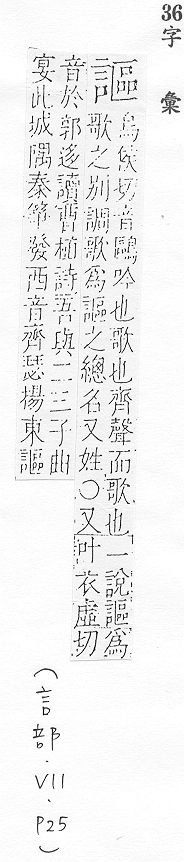 36字 彙
謳
烏侯切音鷗吟也歌也齊聲而歌也一說謳為
歌之別調歌為謳之總名又姓○又叶衣虛切
音於郭迻讀曹植詩吾與二三子曲
宴此城隅秦箏發西音齊瑟揚東謳
(言部.VII.P25)